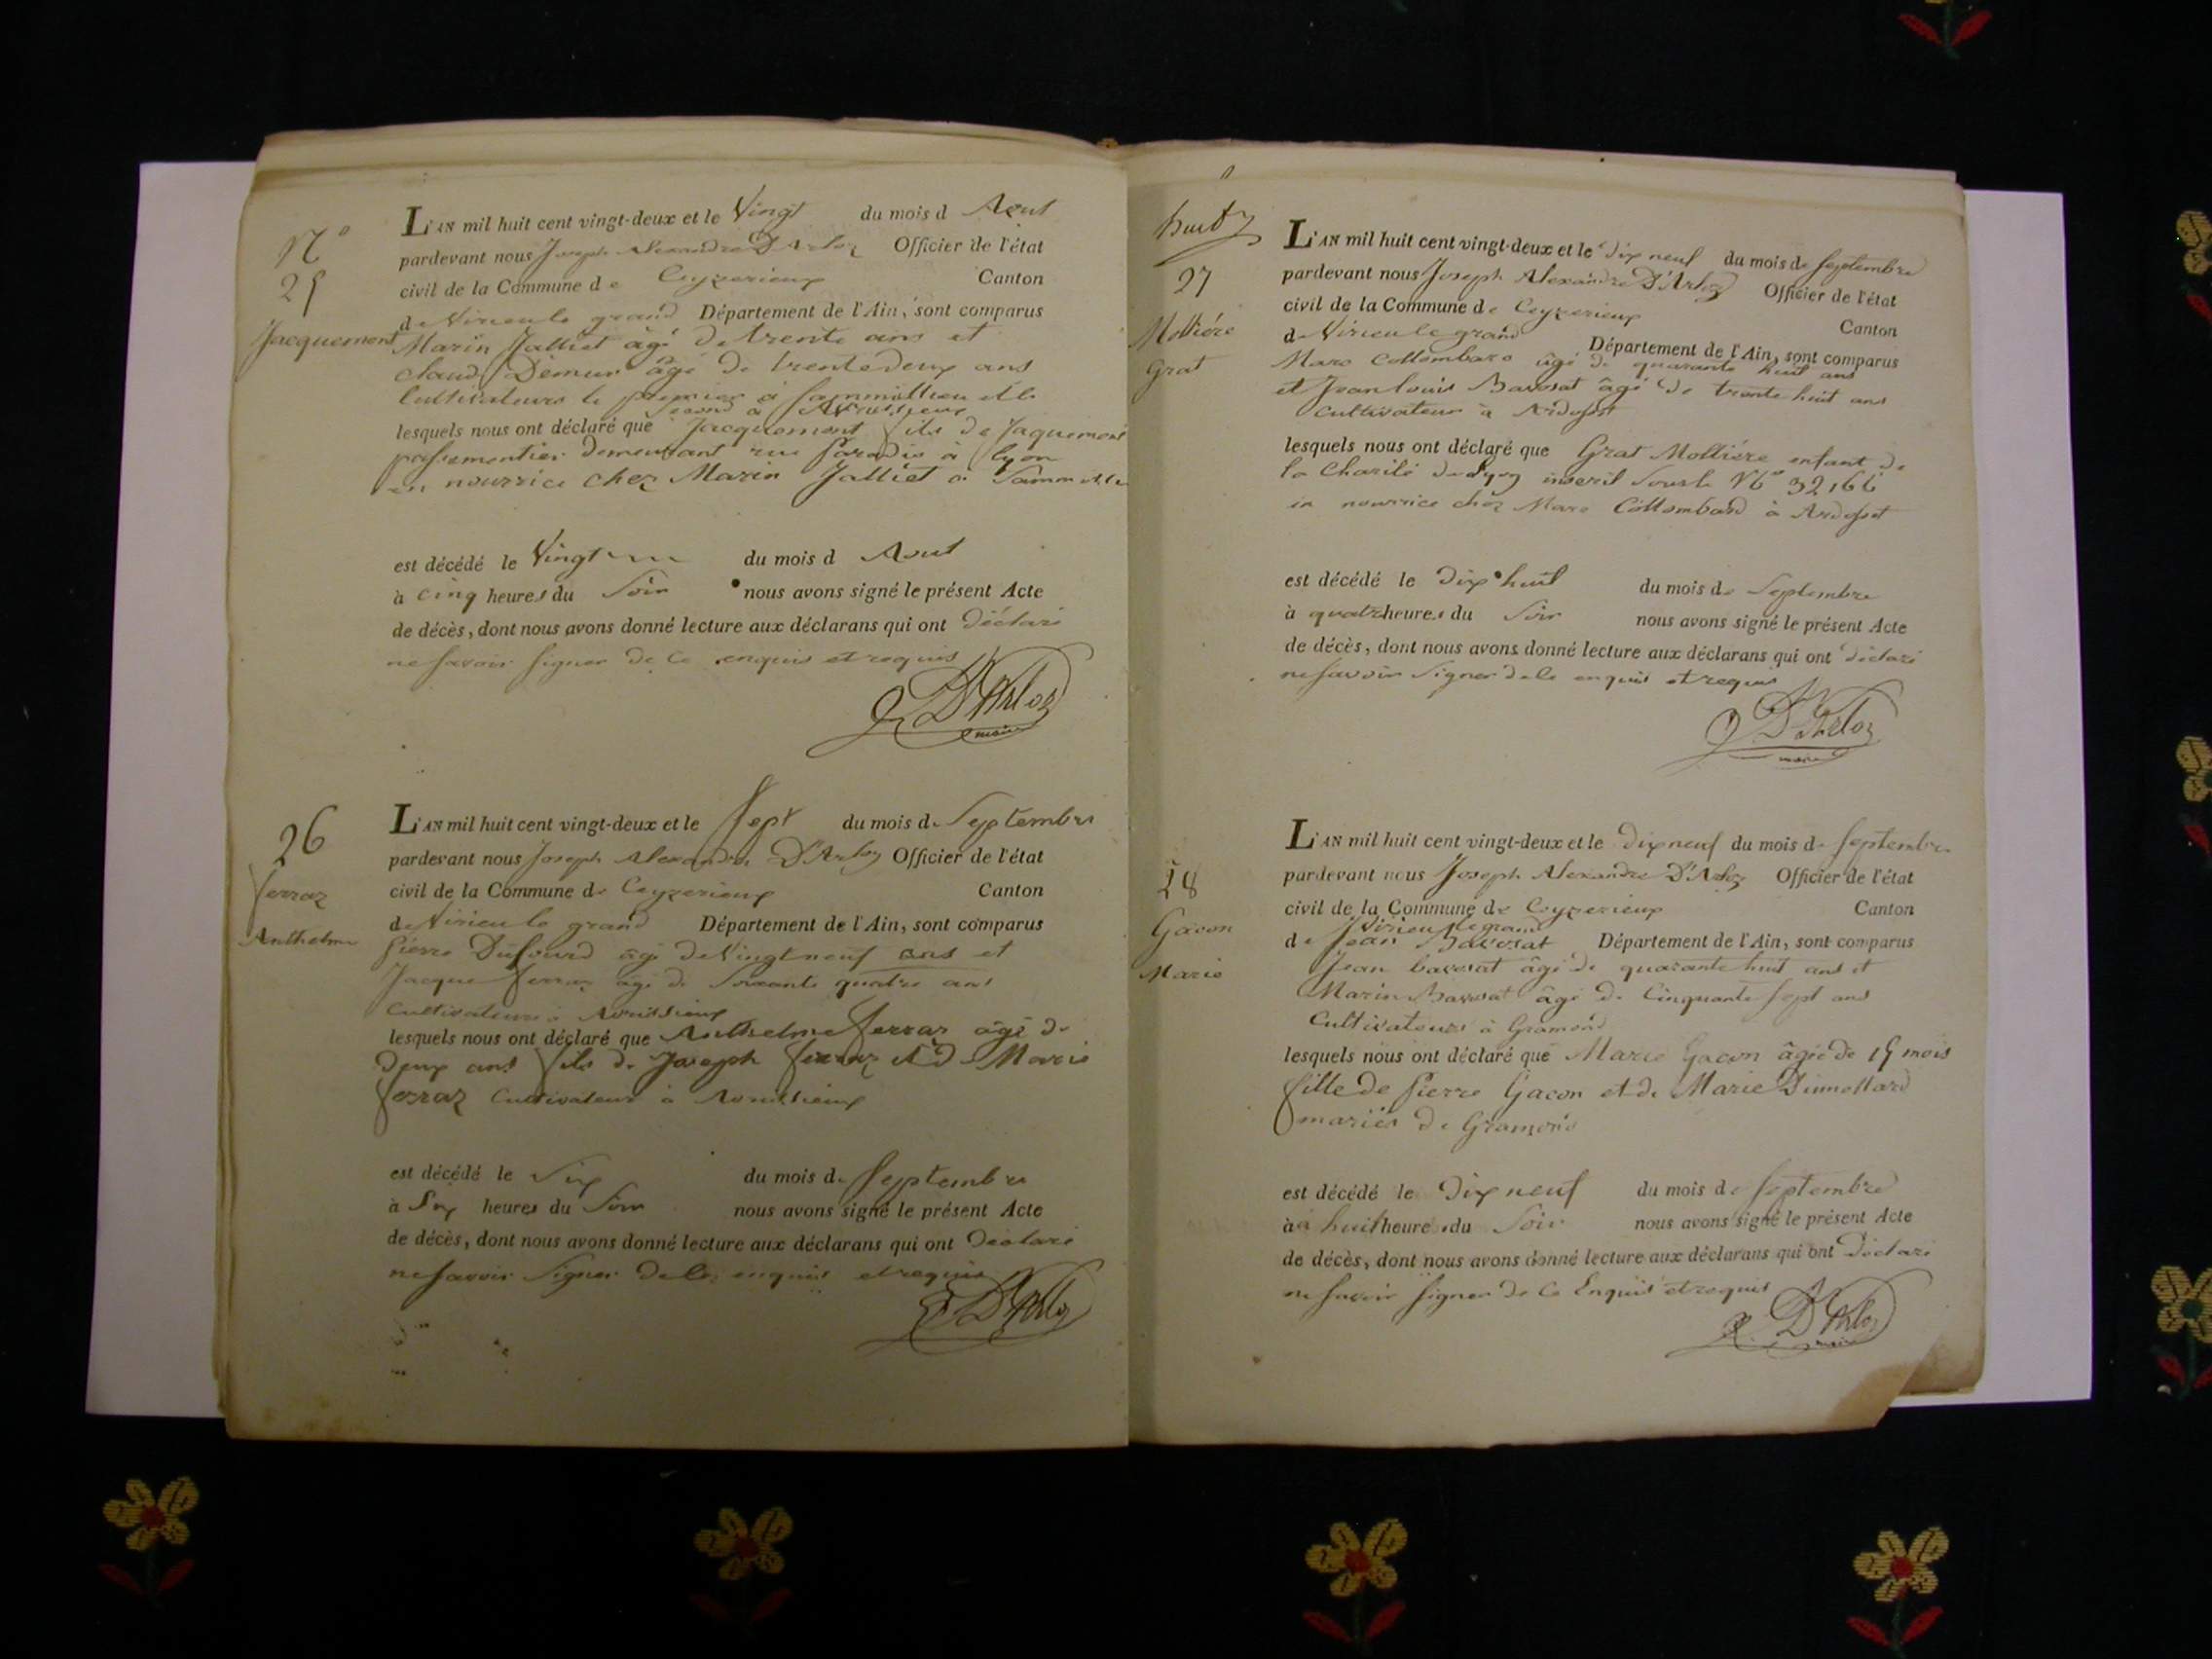 N°
25
Jacquemont
L'AN mil huit cent vingt-deux et le Vingt du mois d Aout
pardevant nous Joseph Alexandre D'Arloz Officier de l'état
civil de la Commune de Ceyzerieux Canton
de Virieu le grand Département de l'Ain, sont comparus
Marin Jalliet âgé de trente ans et
claude Demur âgé de trente deux ans
Cultivateurs le premier à et le
second à Avrissieux
lesquels nous ont déclaré que Jacquemont fils de Jaquemont
passementier demeurant rue Paradis à lyon
en nourrice chez Marin Jalliet à
est décédé le Vingt du mois d Aout
à cinq heures du Soir nous avons signé le présent Acte
de décès, dont nous avons donné lecture aux déclarans qui ont déclaré
ne savoir signer de ce enquis et requis
J D'Arloz
maire
26
ferraz
Anthelme
L'AN mil huit cent vingt-deux et le Sept du mois de Septembre
pardevant nous Joseph Alexandre D'Arloz Officier de l'état
civil de la Commune de Ceyzerieux Canton
de Virieu le grand Département de l'Ain, sont comparus
Pierre Dufourd âgé de Vingt neuf ans et
Jacque ferraz âgé de Soixante quatre ans
Cultivateurs à Avrissieux
lesquels nous ont déclaré que Anthelme ferraz âgé de
deux ans fils de Joseph ferraz et de Marie
ferraz Cultivateur à Avrissieux
est décédé le Six du mois de Septembre
à Six heures du Soir nous avons signé le présent Acte
de décès, dont nous avons donné lecture aux déclarans qui ont déclaré
ne savoir signer de ce enquis et requis
J D'Arloz
huit
27
Mollière
Grat
L'AN mil huit cent vingt-deux et le dix neuf du mois de Septembre
pardevant nous Joseph Alexandre D'Arloz Officier de l'état
civil de la Commune de Ceyzerieux Canton
de Virieu le grand Département de l'Ain, sont comparus
Marc Collombard âgé de quarante huit ans
et Jean louis Bavosat âgé de trente huit ans
Cultivateur à Ardosset
lesquels nous ont déclaré que Grat Mollière enfant de
la Charité de Lyon inscrit Sous le N° 32166
en nourrice chez Marc Collombard à Ardosset
est décédé le dix huit du mois de Septembre
à quatre heures du Soir nous avons signé le présent Acte
de décès, dont nous avons donné lecture aux déclarans qui ont déclaré
ne savoir signer de ce enquis et requis
J D'Arloz
maire
28
Gacon
Marie
L'AN mil huit cent vingt-deux et le dix neuf du mois de Septembre
pardevant nous Joseph Alexandre D'Arloz Officier de l'état
civil de la Commune de Ceyzerieux Canton
Virieu le grand
de Jean Bavosat Département de l'Ain, sont comparus
Jean bavosat âgé de quarante huit ans et
Marin Bavosat âgé de Cinquante Sept ans
Cultivateurs à Gramond
lesquels nous ont déclaré que Marie Gacon âgée de 15 mois
fille de Pierre Gacon et de Marie
mariés de Gramond
est décédé le Dix neuf du mois de Septembre
à à huit heures du Soir nous avons signé le présent Acte
de décès, dont nous avons donné lecture aux déclarans qui ont Déclaré
ne savoir signer de ce Enquis et requis
J. D'Arloz
maire